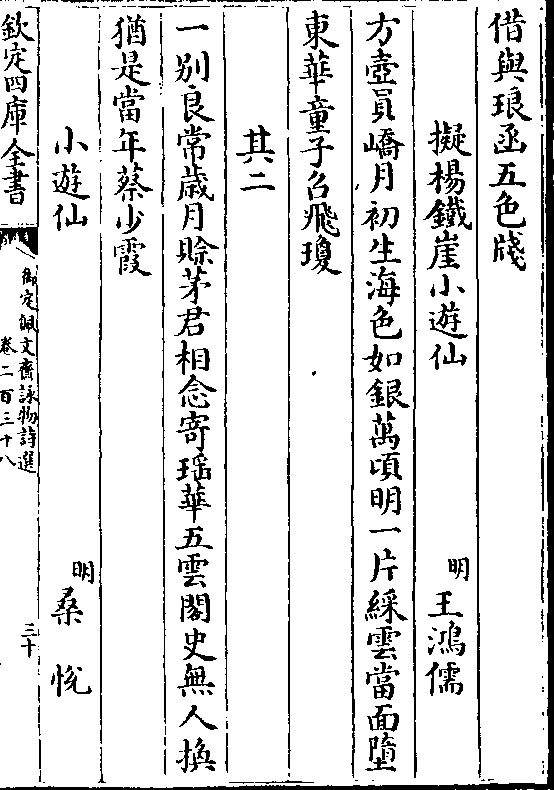 借與琅函五色牋
擬楊鐵崖小遊仙 明 王鴻儒
方壺員嶠月初生海色如銀萬頃明一片綵雲當面墮
東華童子召飛瓊
其二
一别良常歳月賒茅君相念寄瑶華五雲閣史無人換
猶是當年蔡少霞
小遊仙 明 桑悅
欽定四庫全書
御定佩文齋詠物詩選
卷二百三十八
三十